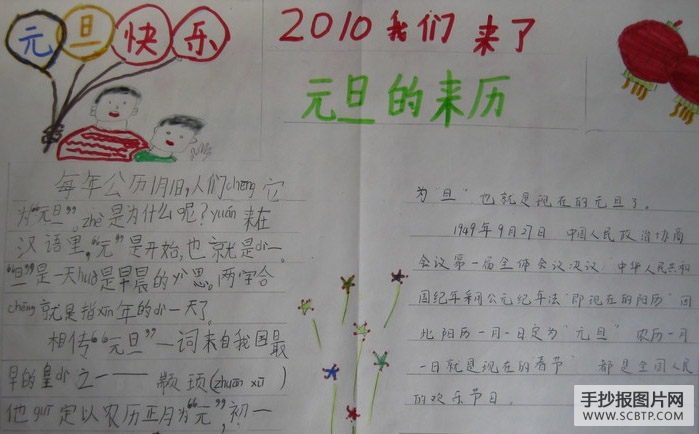 元旦快乐
2010我们来了
元旦的来历
每年公历1月1日,人们chēng它
为“元旦”,zhè是为什么呢?yuán来在
汉语里,“元”是开始,也就是dì一。
“旦”是一天huò是早晨的yì思。两字合
chēng就是指xīn年的dì一天了。
相传“元旦”一词来自我国最
早的皇dì之一——颛顼(zhuān xū)
他guī定以农历正月为“元”,初一
为“旦”也就是现在的元旦了。
1949年9月27日 中国人民政治协商
会议第一届全体会议决议 中华人民共和
国纪年采用公元纪年法“即现在的阳历”
此阳历一月一日定为“元旦” 农历一月
一日就是现在的春节” 都是全国人民
的欢乐节日。
手抄报图片网
WWW.SCBTP.COM